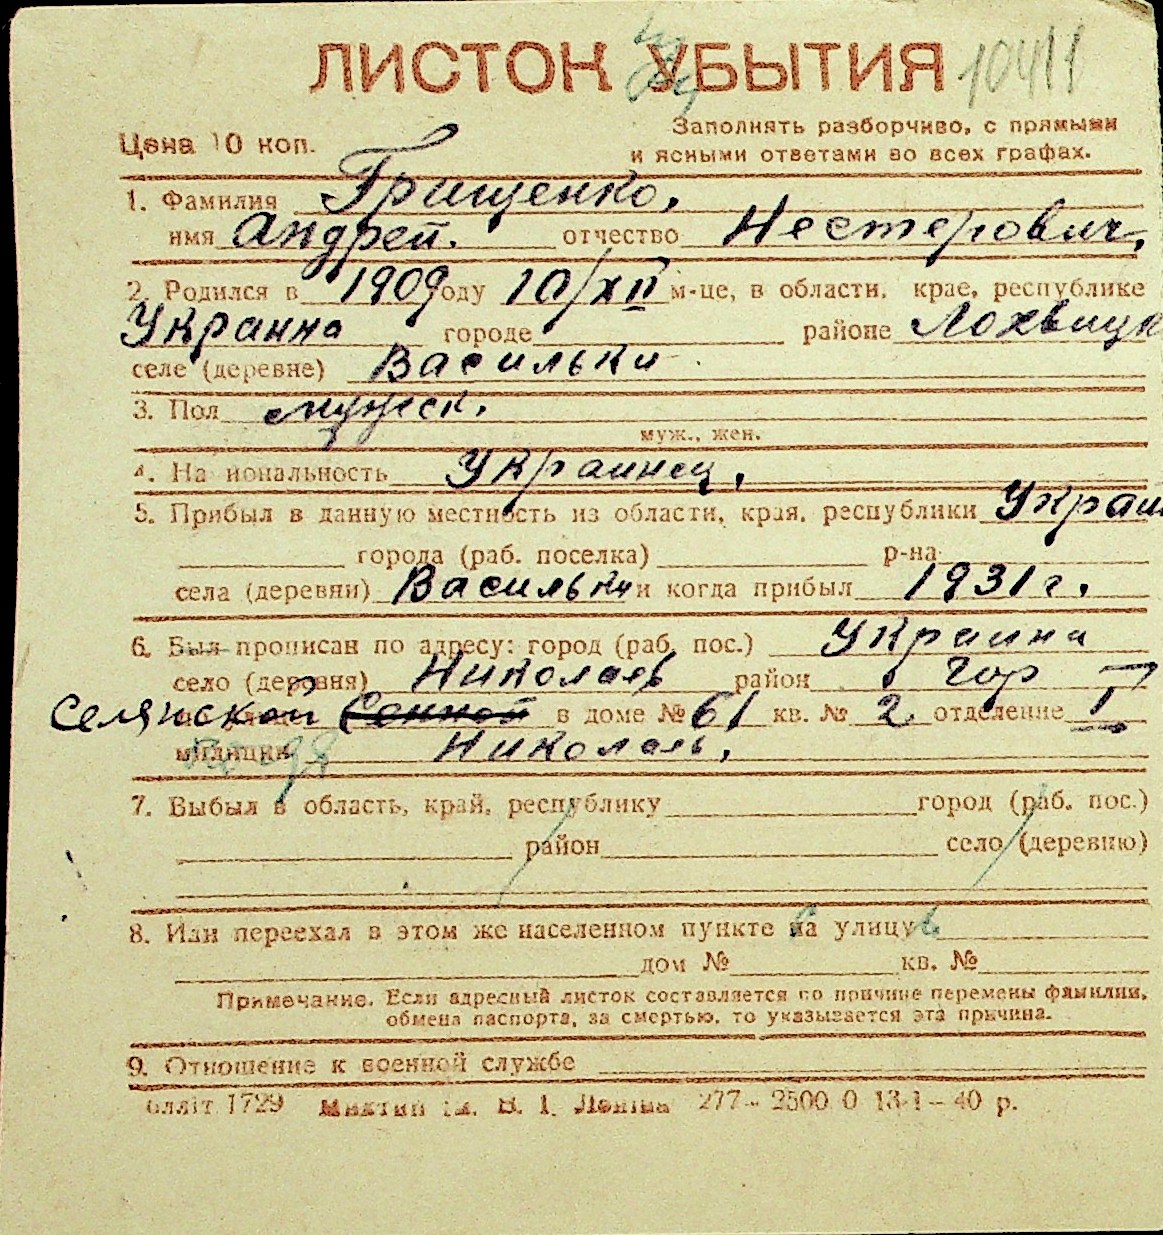 ЛИСТОК УБЫТИЯ 10411
Цена 10 коп.
Заполнять разборчиво, с прямыми
и ясными ответами во всех графах.
1. Фамилия Грищенко,
имя Андрей. отчество Нестерович,
2. Родился в 1909 году 10/XII м-це, в области, крае, республике
Украина городе районе Лохвицк
селе (деревне) Васильки
3. Пол мужск.
муж., жен.
4. На иональность Украинец,
5. Прибыл в данную местность из области, края, республики Украин
города (раб. поселка) р-на
села (деревни) Васильки и когда прибыл 1931 г.
6. Был прописан по адресу: город (раб. пос.) Украина
село (деревня) Николаев район Гор
Селянской Сенной в доме № 61 кв. № 2 отделение I
милиции Николаев,
7. Выбыл в область, край, республику город (раб. пос.)
район село (деревню)
8. Или переехал в этом же населенном пункте на улицу
дом № кв. №
Примечание. Если адресный листок составляется по причине перемены фамилии,
обмена паспорта, за смертью, то указывается эта причина.
9. Отношение к военной службе
блліт 1729 ім. В. І. Леніна 277 – 2500 0 13-1 – 40 р.